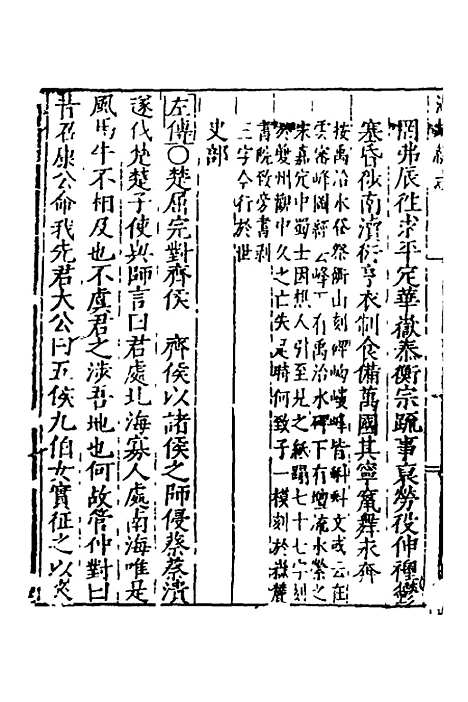 罔弗辰往求平定華嶽泰衡宗疏事裒勞役伸禋鬱
塞昏徙南瀆衍亨衣制食備萬國其寧竄舞永奔
按禹治水俗祭衡山刻碑岣嶁峰皆科斗文或云在
雲密峰圖經云峰下有禹治水碑下有流水縈之
宋嘉定中蜀士因樵人引至見之紙蹋七十七字刻
於夔州觀中久之亡失是時何致子一模刻於嶽麓
書院攷旁書刹
三字今行於世
史部
左傳〇楚屈完對齊侯 齊侯以諸侯之師侵蔡蔡潰
遂伐楚楚子使與師言曰君處北海寡人處南海唯是
風馬牛不相及也不虞君之涉吾地也何故管仲對曰
昔召康公命我先君大公曰五侯九伯女實征之以夾